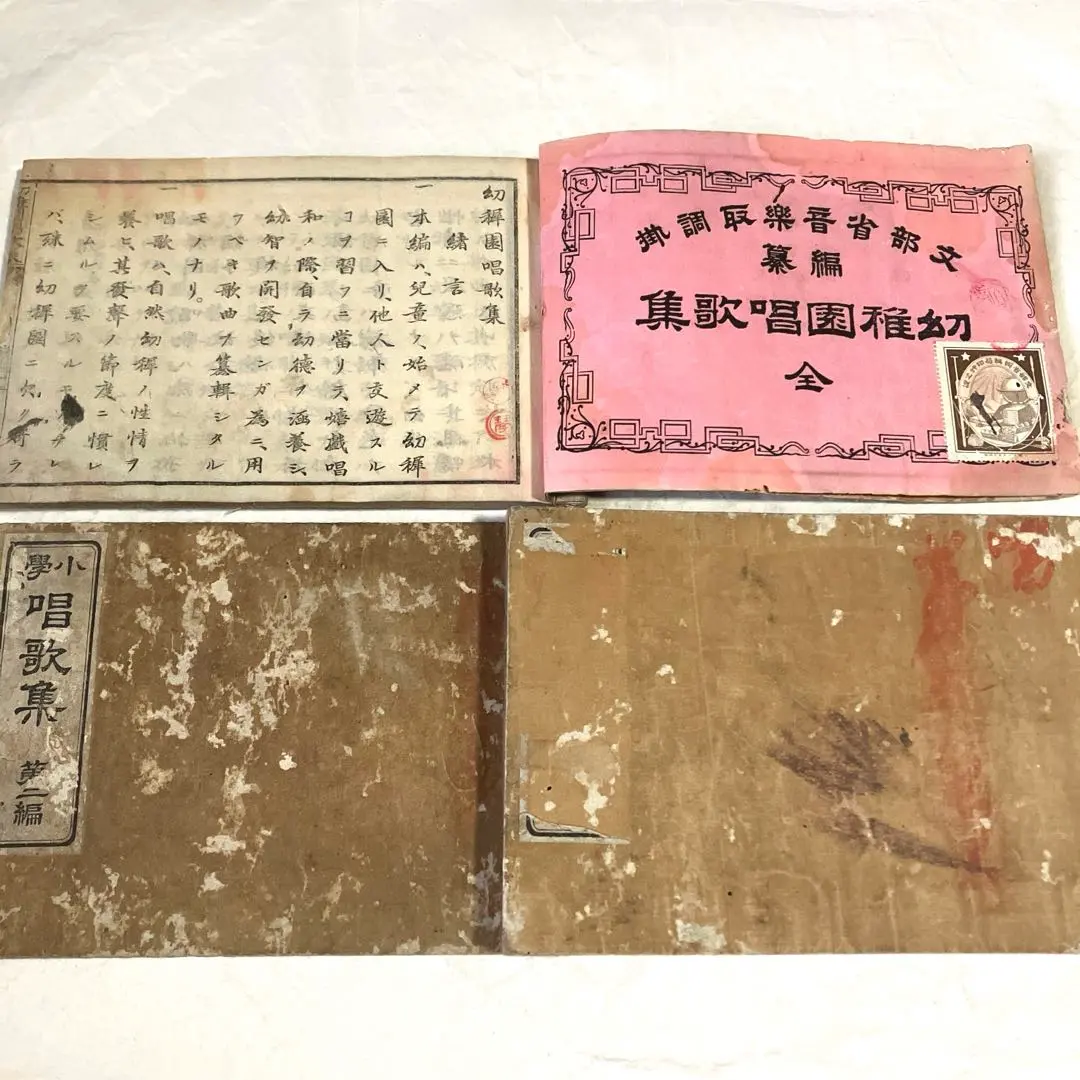 幼稺園唱歌集
緒言
一 本編ハ、兒童ノ、始メテ幼稺
園ニ入リ、他人ト交遊スル
コヲ習フニ當リテ、嬉戯唱
和ノ際、自ラ幼徳ヲ涵養シ、
幼智ヲ開發センガ為ニ、用
フベキ歌曲ヲ纂輯シタル
モノナリ。
一 唱歌ハ、自然幼稺ノ性情ヲ
養ヒ、其發聲ノ節度ニ慣レ
シムルヲ要スルモノナレ
バ、殊ニ幼稺園ニ欠ク
文部省音樂取調掛
編纂
幼稚園唱歌集
全
小學
唱歌集
第二編